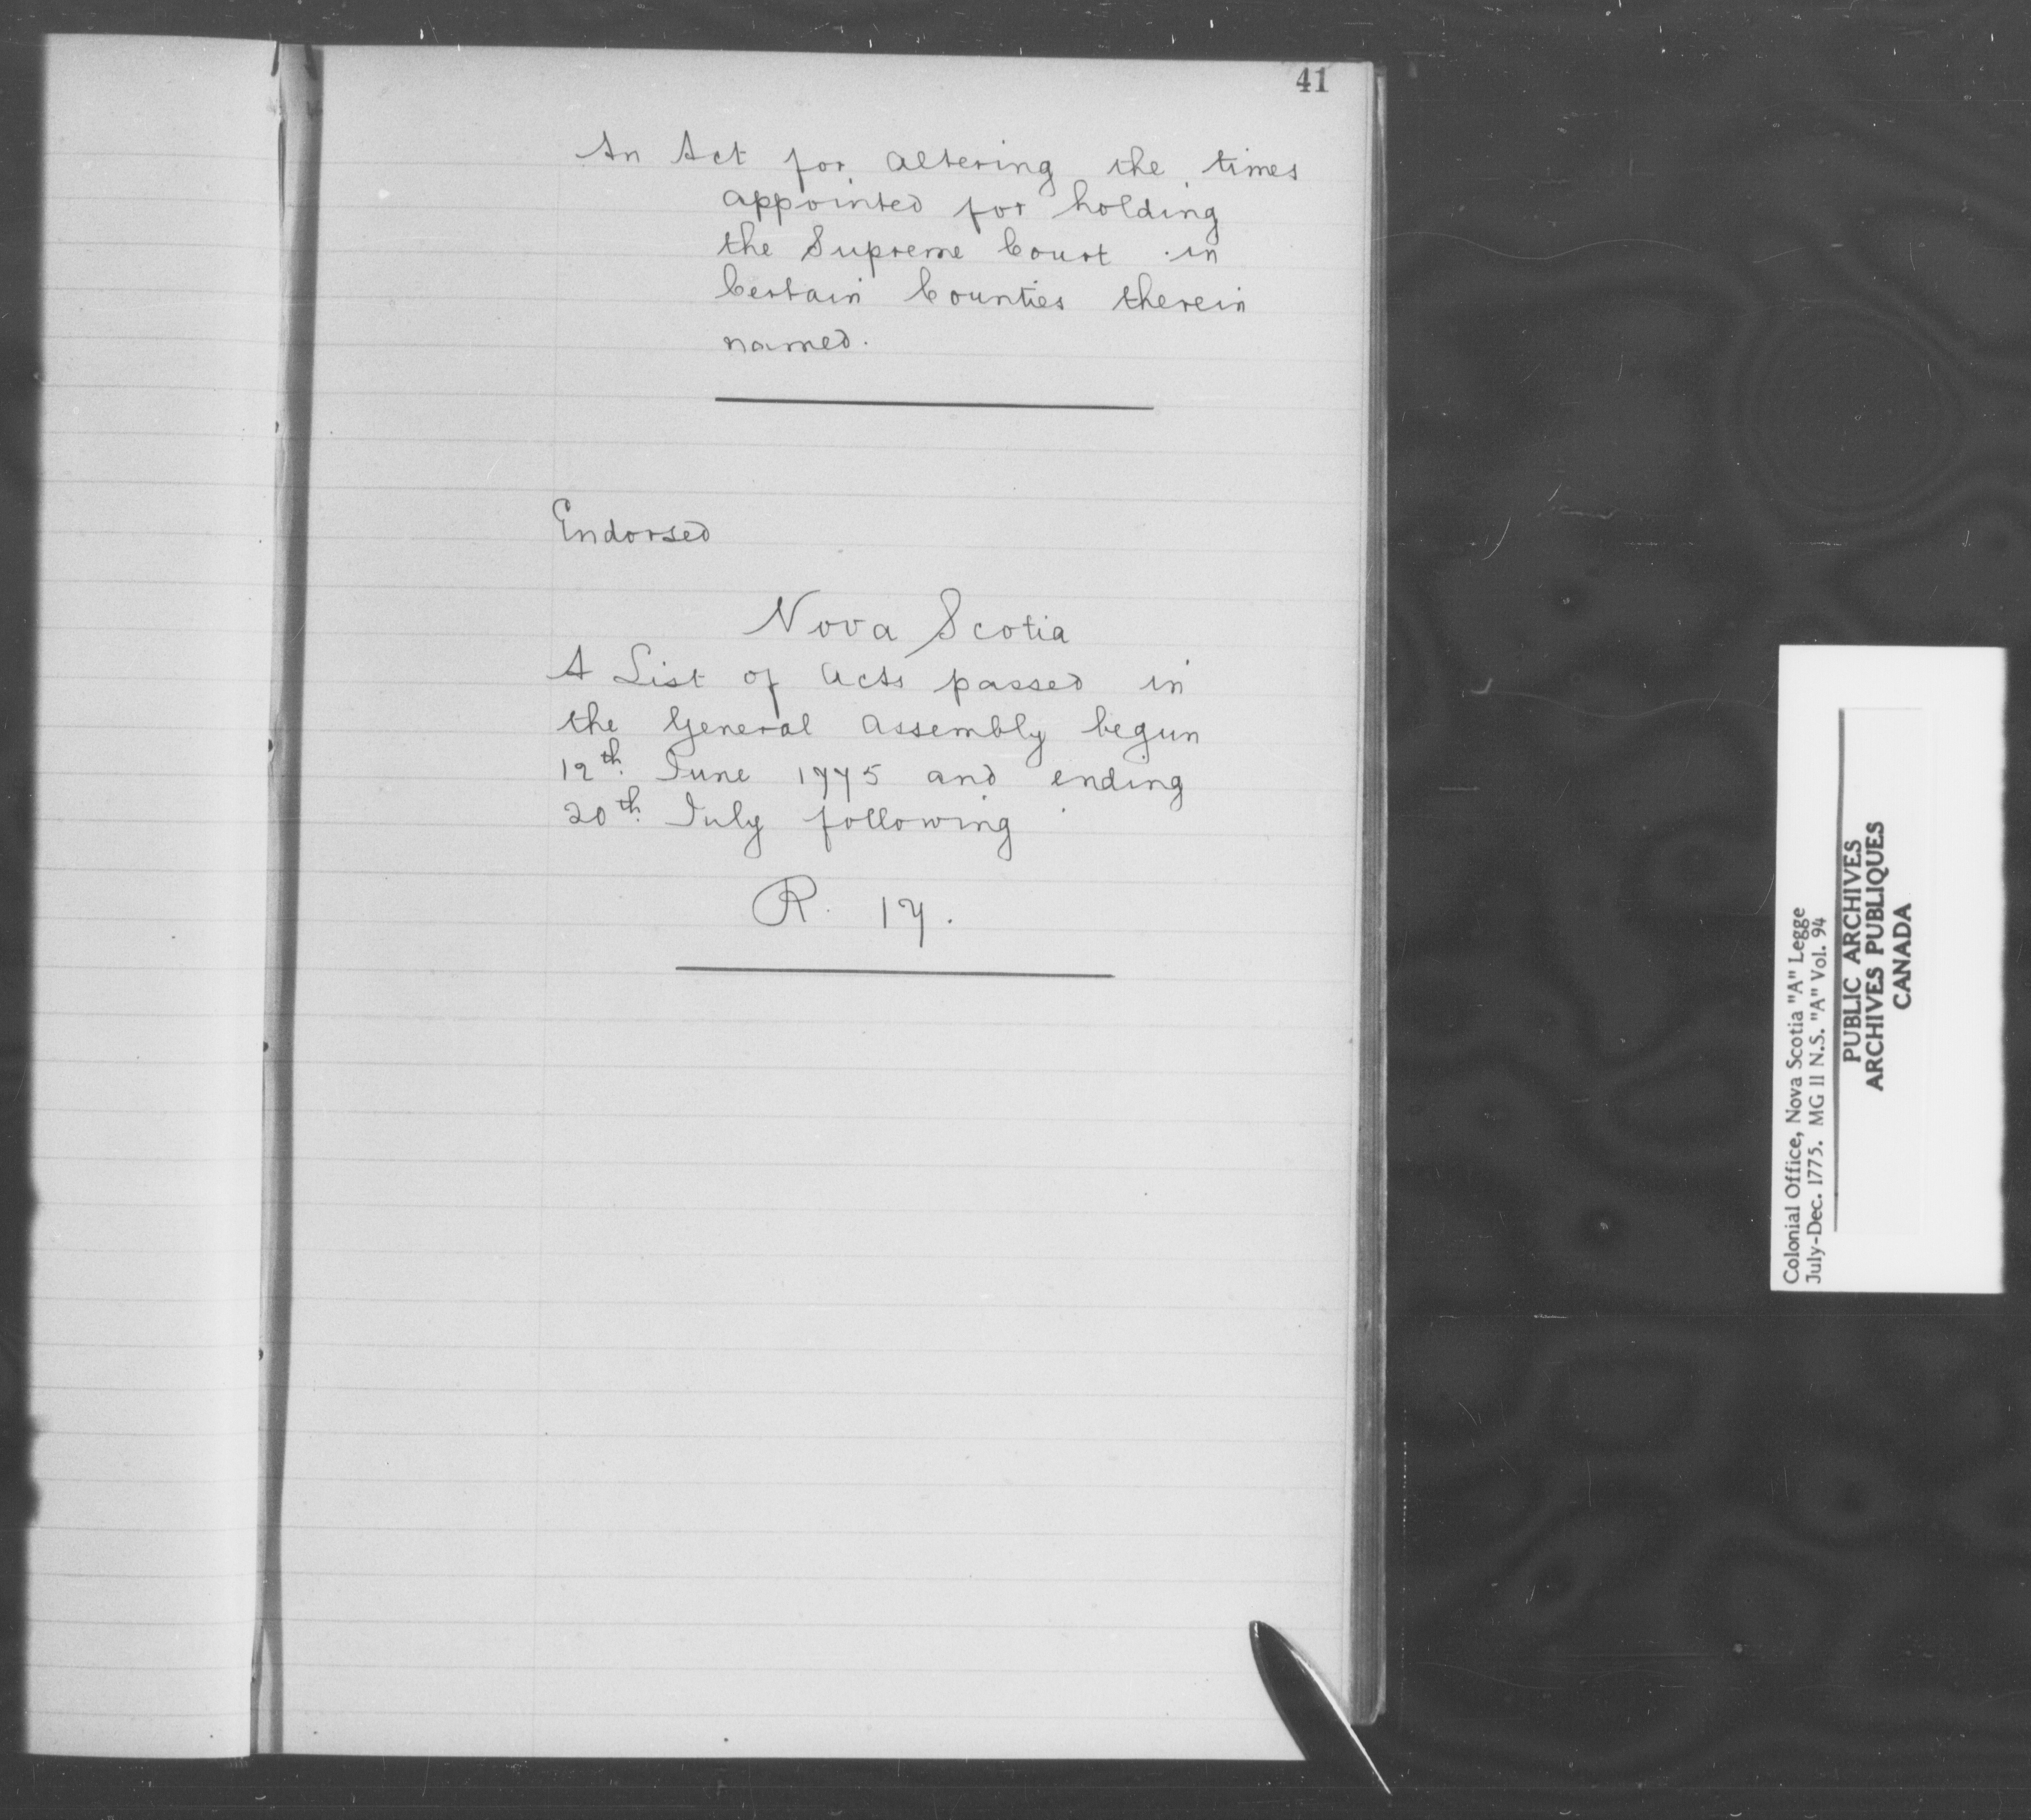 41
An Act for altering the times
appointed for holding
the Supreme Court in
Certain Counties therein
named.
Endorsed
Nova Scotia
A List of Acts passed in
the General Assembly begun
12th June 1775 and ending
20th July following
R. 17.
Colonial Office, Nova Scotia "A" Legge
July-Dec. 1775. MG 11 N.S. "A" Vol. 94
PUBLIC ARCHIVES
ARCHIVES PUBLIQUES
CANADA